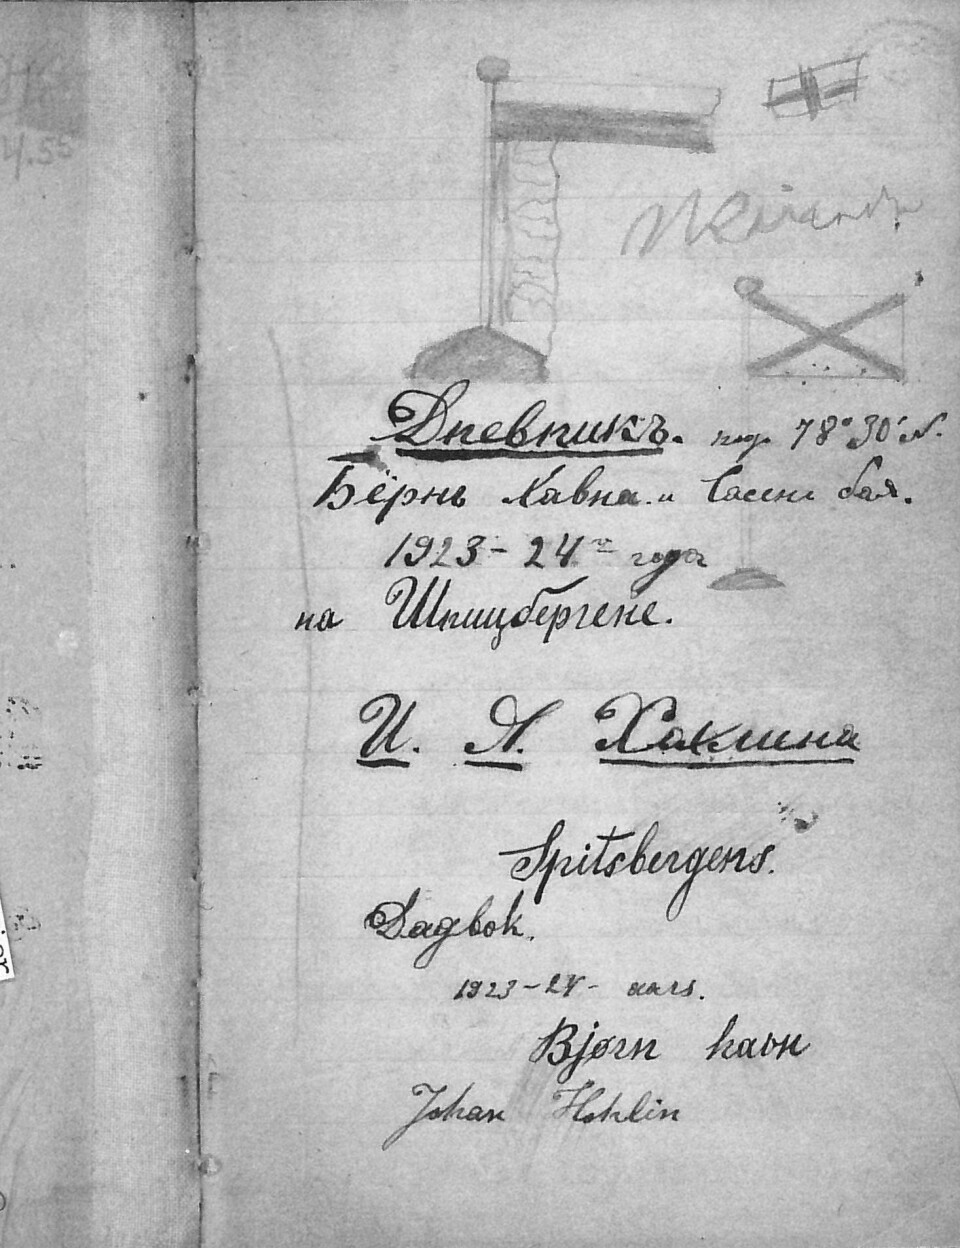 4.55
Дневникъ. под 78°30' N.
Бёрнь Хавна. и Сассенъ бая.
1923-24 года
на Шпицбергене.
И. А. Хаклина
Spitsbergens.
Dagbok.
1923-24- aars.
Bjørn havn
Johan Hoklin